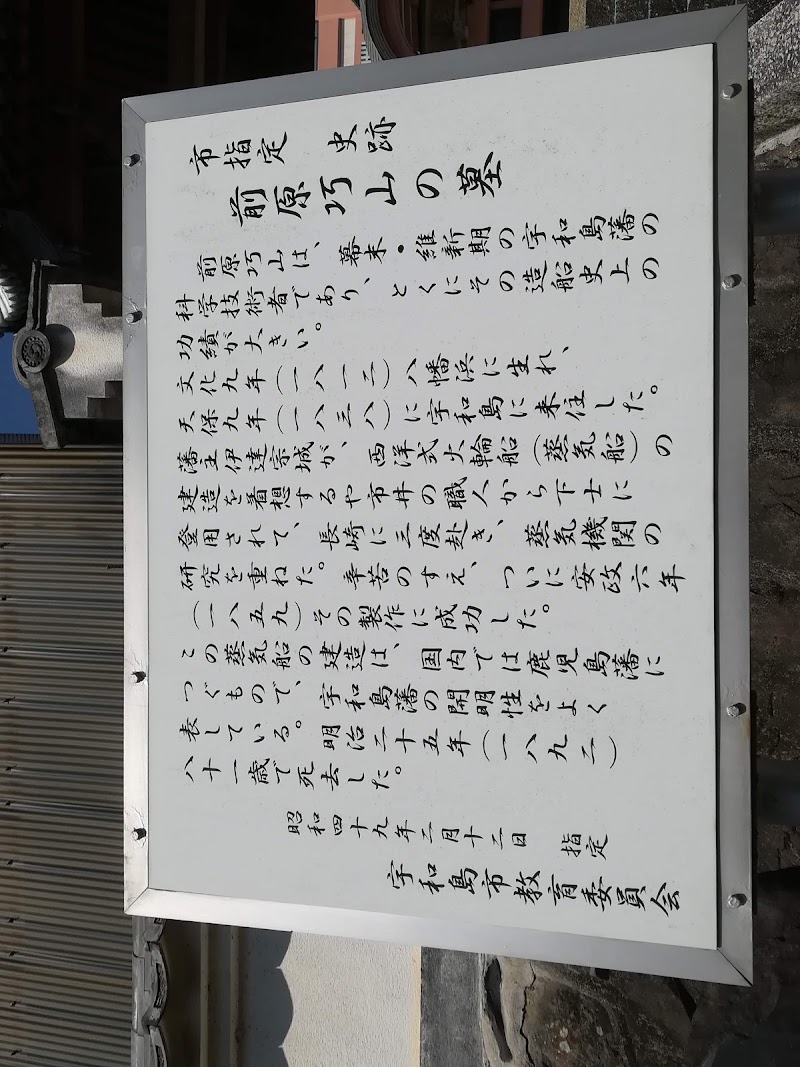 市指定 史跡
前原巧山の墓
前原巧山は、幕末・維新期の宇和島藩の
科学技術者であり、とくにその造船史上の
功績が大きい。
文化九年(一八一二)八幡浜に生れ、
天保九年(一八三八)に宇和島に来住した。
藩主伊達宗城が、西洋式火輪船(蒸気船)の
建造を着想するや市井の職人から下士に
登用されて、長崎に三度赴き、蒸気機関の
研究を重ねた。辛苦のすえ、ついに安政六年
(一八五九)その製作に成功した。
この蒸気船の建造は、国内では鹿児島藩に
つぐもので、宇和島藩の開明性をよく
表している。明治二十五年(一八九二)
八十一歳で死去した。
昭和四十九年二月十二日 指定
宇和島市教育委員会